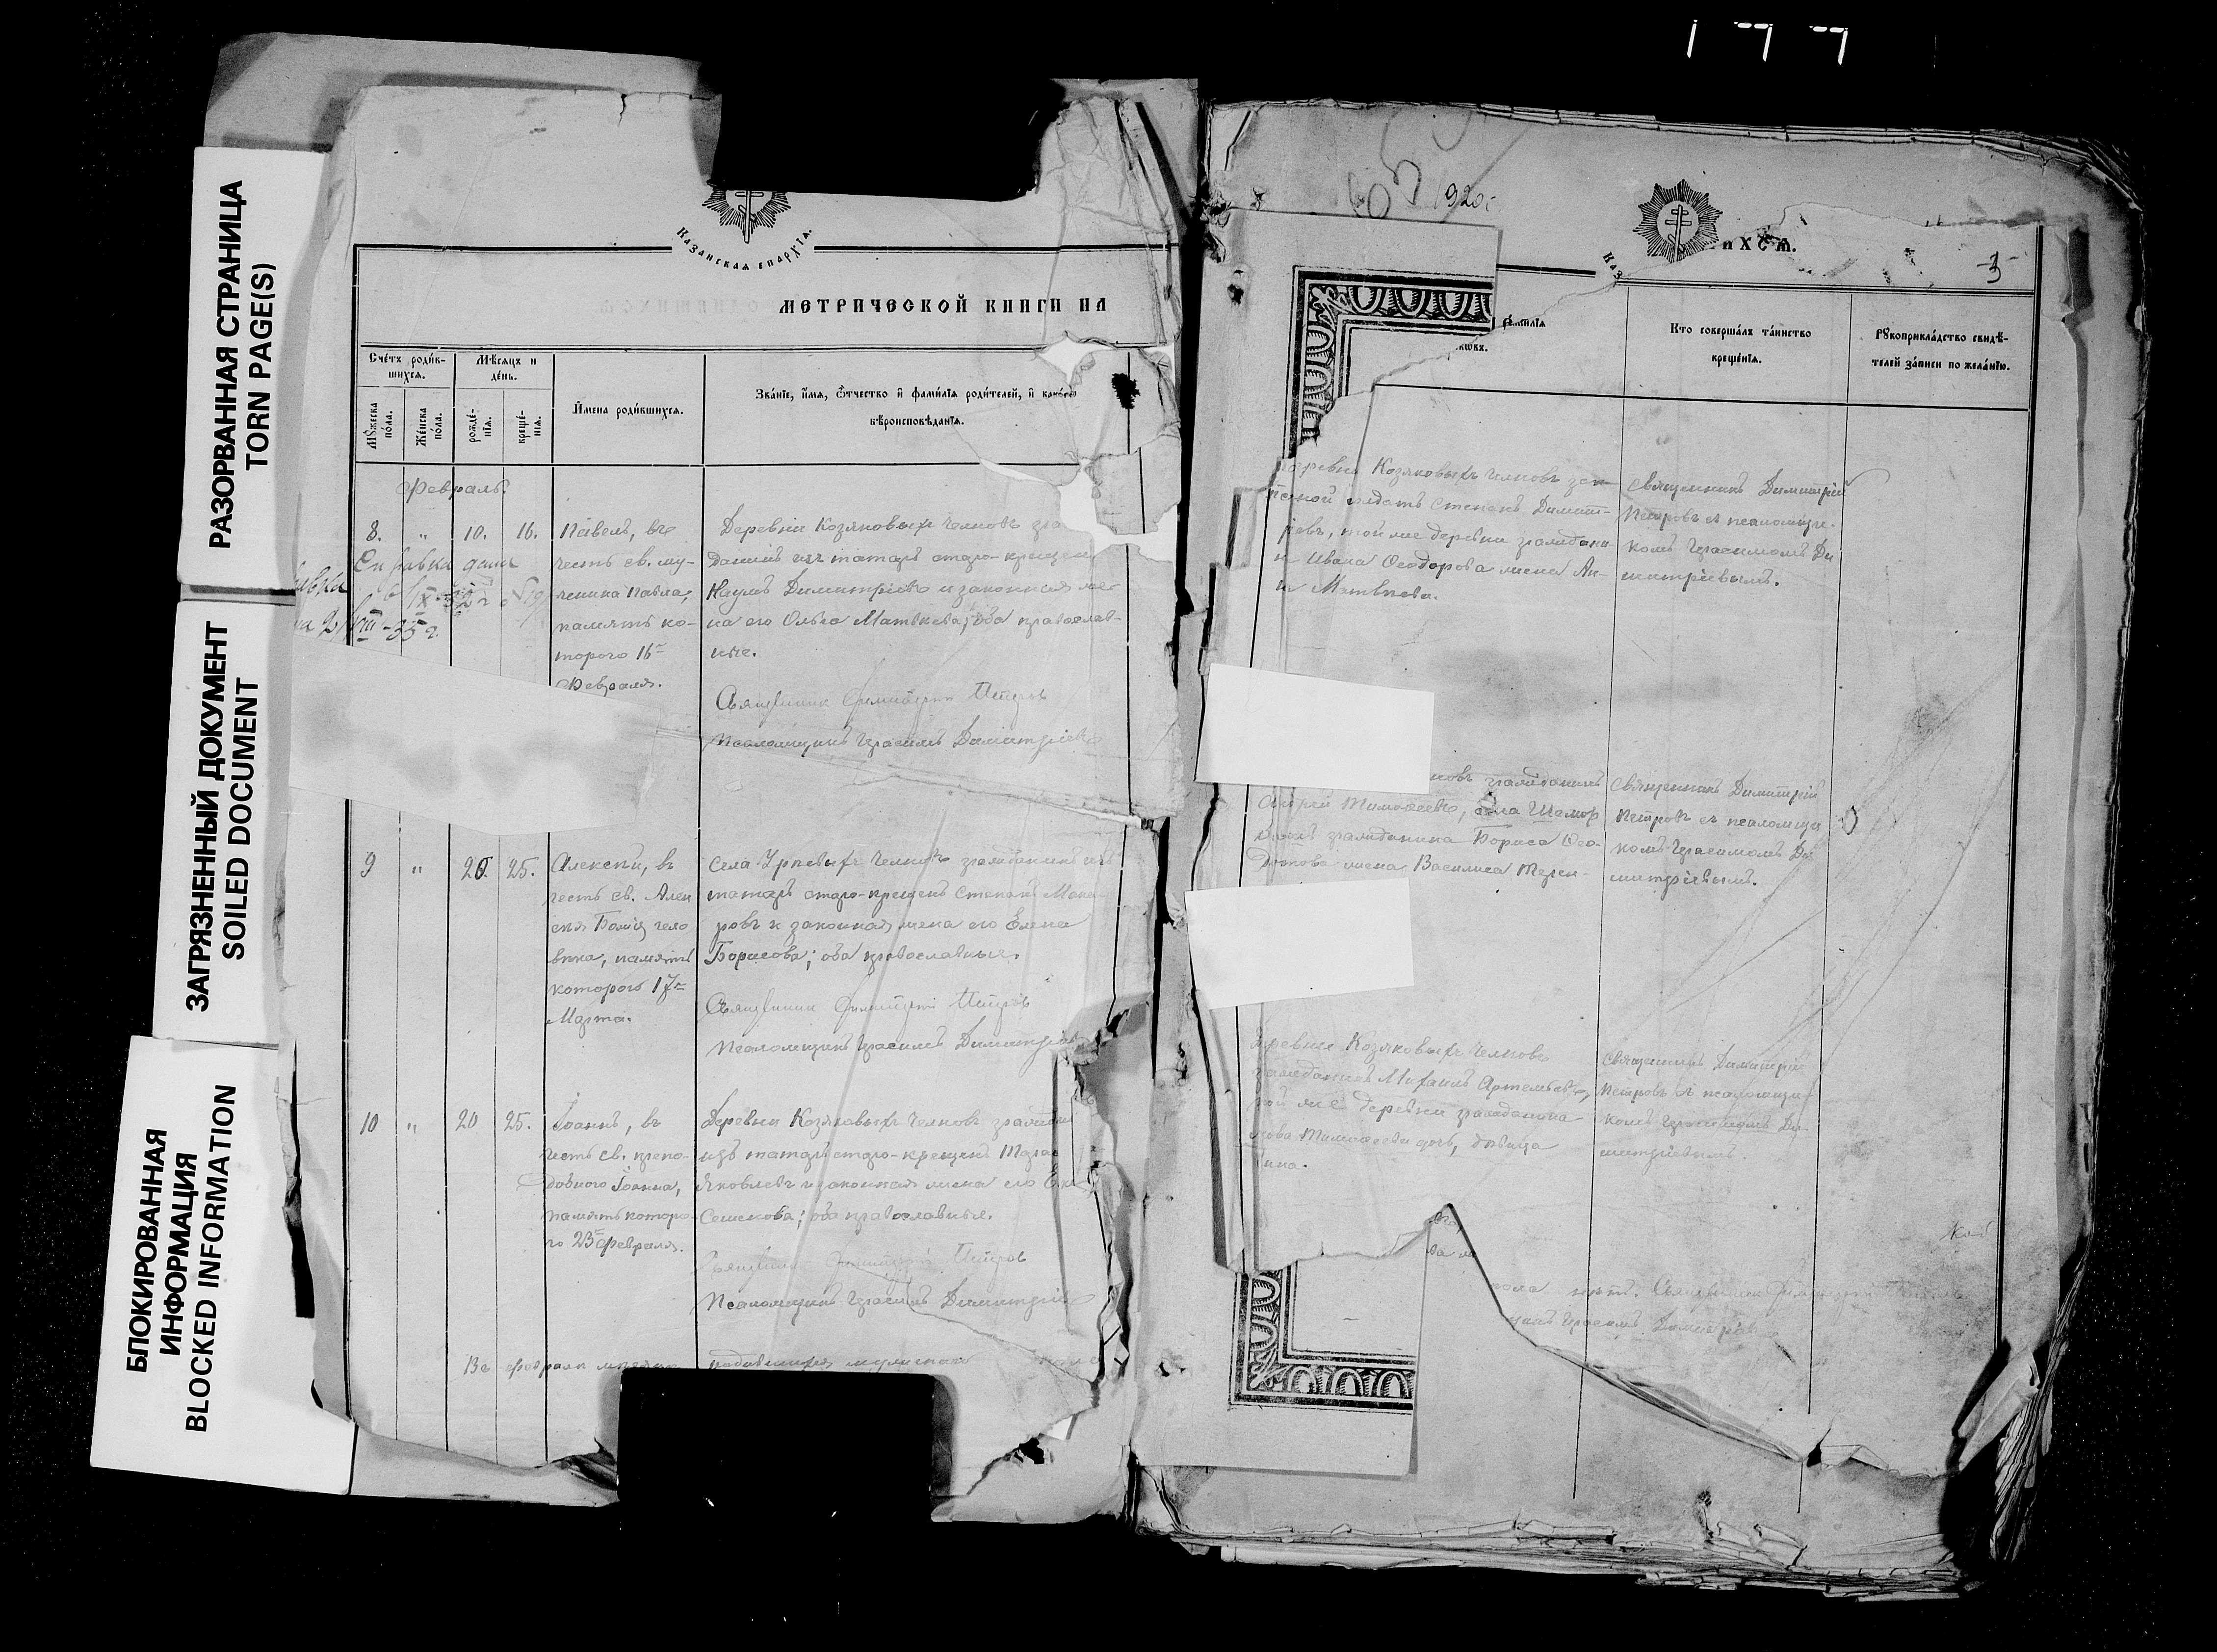 1 7 7
РАЗОРВАННАЯ СТРАНИЦА
TORN PAGE(S)
ЗАГРЯЗНЕННЫЙ ДОКУМЕНТ
SOILED DOCUMENT
БЛОКИРОВАННАЯ
ИНФОРМАЦИЯ
BLOCKED INFORMATION
Казанская епархїѧ.
МЕТРИЧЕСКОЙ КНИГИ НА
Счéтъ роди́в-
шихсѧ.
Мꙋ́жеска
по́ла.
Же́нска
по́ла.
Мѣ́сяцъ и
де́нь.
рожде́-
нїѧ.
креще́-
нїѧ.
И́мена роди́вшихсѧ.
Зва́нїе, и́мѧ, ѻ́тчество и҆ фами́лїѧ роди́телей, и҆ како́гѡ
вѣроисповѣ́данїѧ.
Февраль.
8. " 10. 16.
Павелъ, въ
честь св. му-
ченика Павла,
память ко-
тораго 16го
Февраля.
Деревни Козяковыхъ Челновъ
данинъ изъ татаръ старо-крещенъ
Наумъ Димитріевъ и законная же
на его Ольга Матвѣева; оба православ-
ные.
Священникъ Димитрій Петровъ
Псаломщикъ Герасимъ Димитріевъ
Справка дана
-35 г.
9 " 20. 25.
Алексѣй, въ
честь св. Алек
сѣя Божія чело
вѣка, память
котораго 17го
Марта.
Села Урѣевыхъ Челновъ гражданинъ изъ
татаръ старо-крещенъ Степанъ Мака-
ровъ и законная жена его Елена
Борисова; оба православные.
Священникъ Димитрій Петровъ
Псаломщикъ Герасимъ Димитріевъ
10 " 20 25.
Іоаннъ, въ
честь св. препо-
добнаго Іоанна,
память которо-
го 23го февраля.
Деревни Козяковыхъ Челновъ граждан
изъ татаръ старо-крещенъ
Яковлевъ и законная жена его
Семенова; оба православные.
Священникъ Димитрій Петровъ
Псаломщикъ Герасимъ Димитріевъ
Въ февралѣ мѣсяцѣ родившихся мужскаго пола
1920 г.
ихсѧ.
3
фами́лїѧ
Кто соверша́лъ та́инство
креще́нїѧ.
Рꙋкоприкла́дство свидѣ́-
телей за́писи по жела́нїю.
Деревни Козяковыхъ Челновъ
солдатъ Степанъ Димит-
ріевъ, той же деревни граждани-
на Ивана Ѳеодорова жена Ан-
на Матвѣева.
Священникъ Димитрій
Петровъ съ псаломщи-
комъ Герасимомъ Ди
митріевымъ.
новъ гражданинъ
Андрей Тимоѳеевъ, села Шемор
данъ гражданина Бориса Ѳео-
жена Василиса Терен-
Священникъ Димитрій
Петровъ съ псаломщи
комъ Герасимомъ Ди-
митріевымъ.
Деревни Козяковыхъ Челновъ
гражданинъ Михаилъ Артемьевъ,
той же деревни гражданина
Тимоѳеева дочь, дѣвица
Священникъ Димитрій
Петровъ съ псаломщи-
комъ Герасимомъ Ди-
митріевымъ.
пола нѣтъ. Священникъ Димитрій Петровъ
Герасимъ Димитріевъ